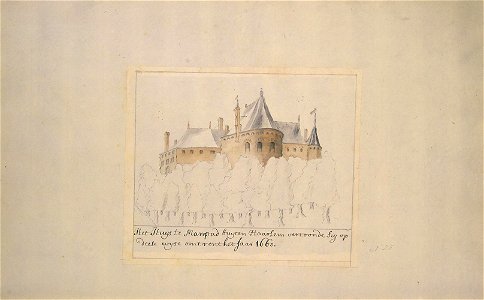 Het Huys te Manpad buyten Haarlem vertoonde sig op
Deese wyse omtrent het Jaar 1660.